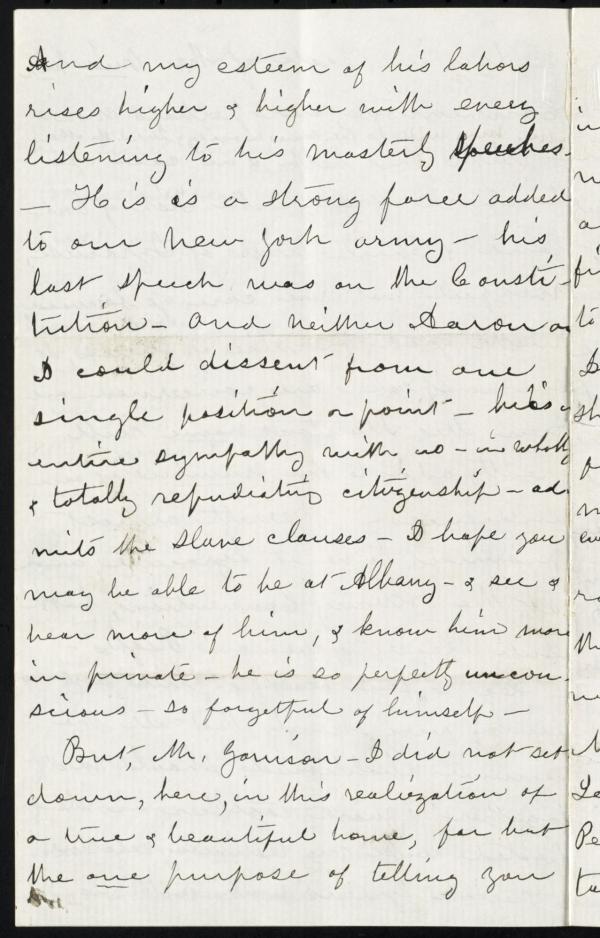 And my esteem of his labors
rises higher & higher with every
listening to his masterly speeches -
— He is is a strong force added
to our New York army - his
last speech was on the Consti-
tution - and neither Aaron or
I could dissent from one
single position or point - he is
entire sympathy with us - in wholly
& totally repudiating citizenship - ad
mits the slave clauses - I hope you
may be able to be at Albany - & see &
hear more of him, & know him more
in private - he is so perfectly uncon-
scious - so forgetful of himself -
But, Mr. Garrison - I did not set
down, here, in this realization of
a true & beautiful home, for but
the one purpose of telling you